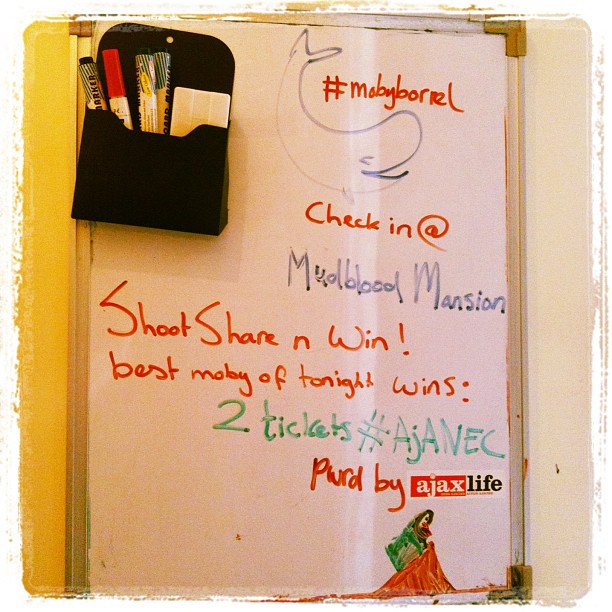 #mobyborrel
Check in @
Mudblood Mansion
Shoot Share n Win!
best moby of tonight wins:
2 tickets #AjANEC
Pwrd by ajaxlife